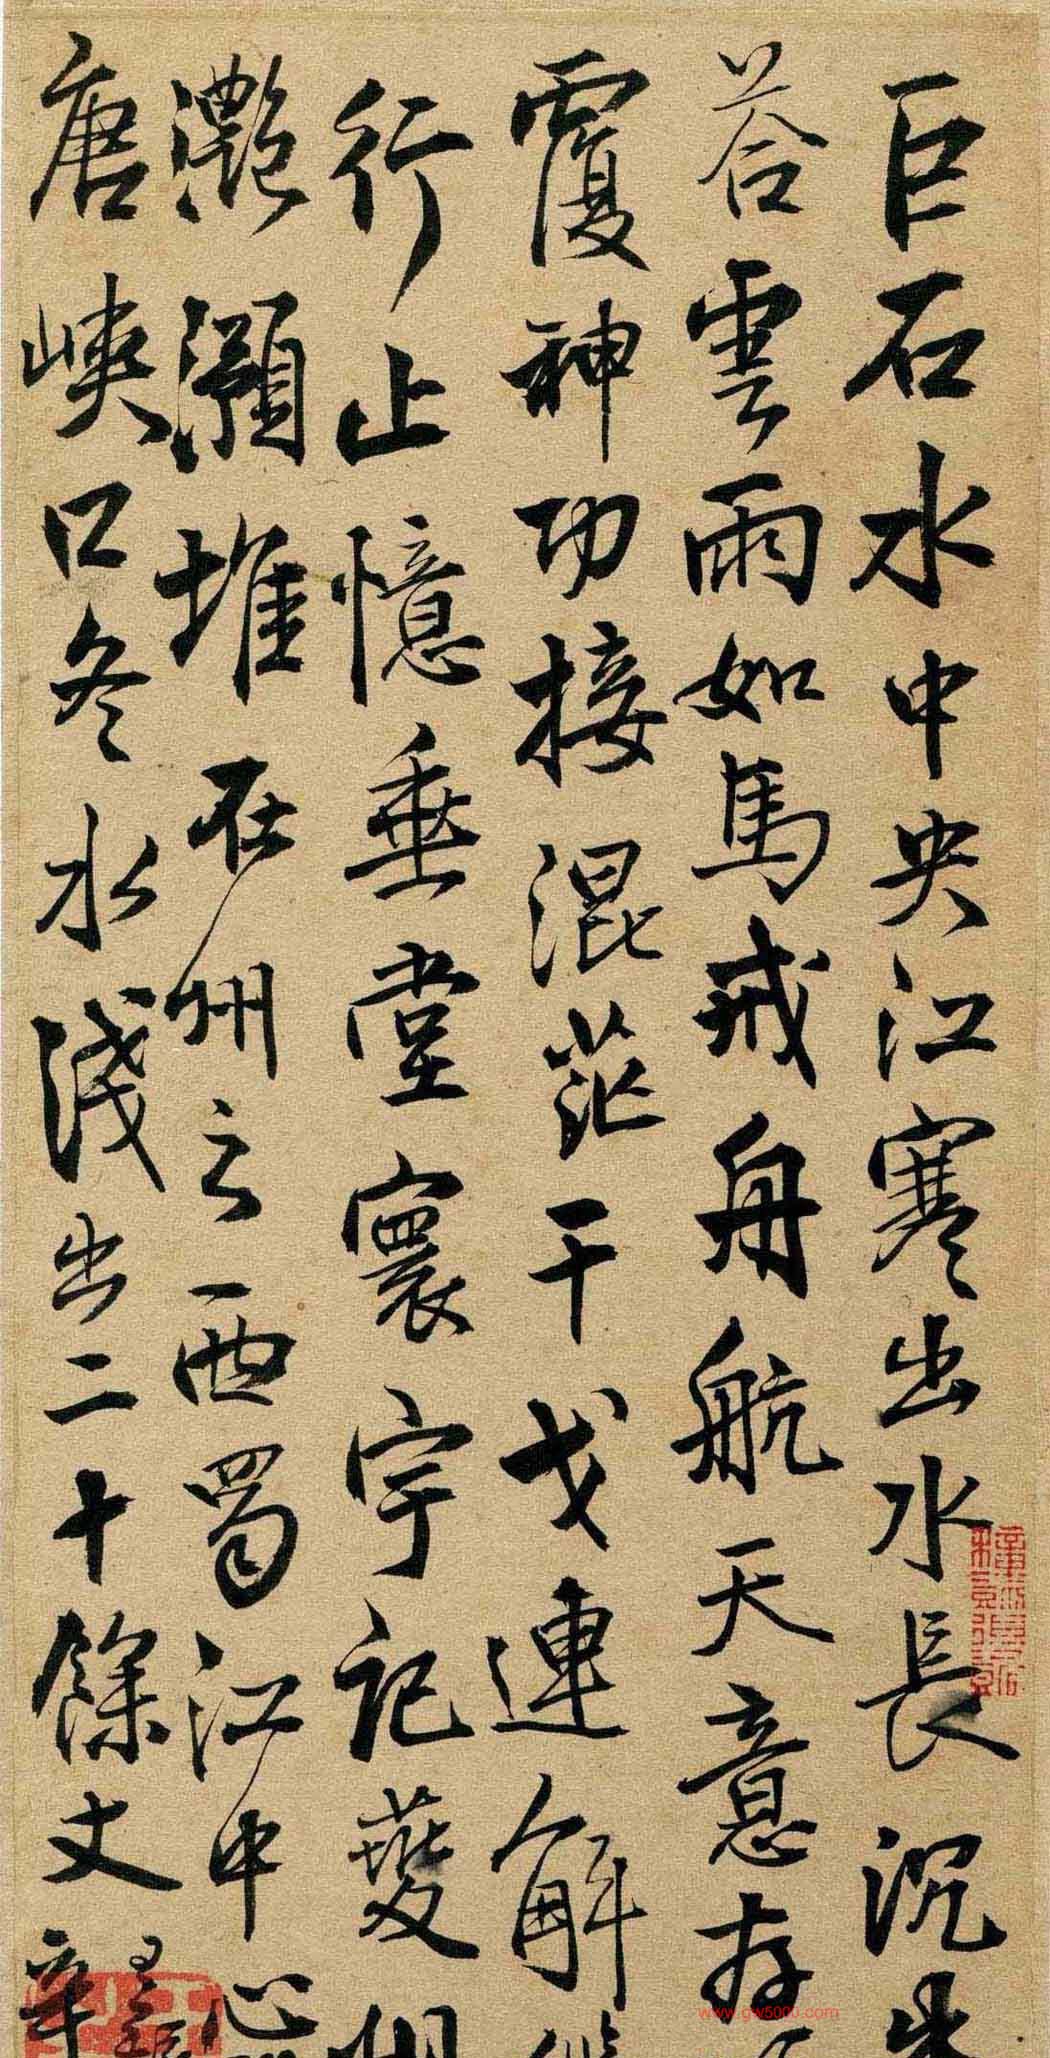 巨石水中央江寒出水長沉牛
荅雲雨如馬戒舟航天意存
覆神功接混茫干戈連解纜
行止憶垂堂寰宇記夔州
灔澦堆在州之西蜀江中心
唐峽口冬水淺出二十餘丈
www.gw5000.com